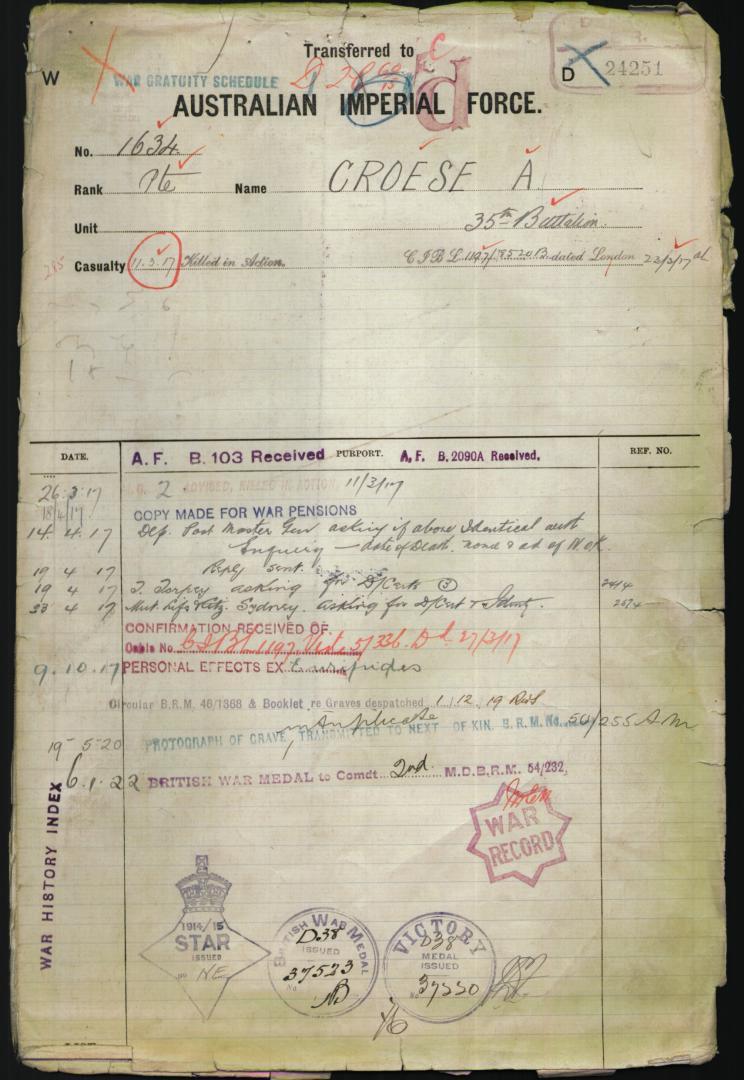 Transferred to
W
WAR GRATUITY SCHEDULE
D
24251
AUSTRALIAN IMPERIAL FORCE.
No. 1634
Rank Pte Name CROESE A.
Unit 35th Battalion.
Casualty 11.3.17 Killed in Action. C I B L 1197 dated London 22/3/17
DATE. A.F. B.103 Received PURPORT. A.F. B.2090A Received. REF. NO.
26.3.17 2 ADVISED, KILLED IN ACTION, 11/3/17
18/4/17 COPY MADE FOR WAR PENSIONS
14.4.17 Dep. Post Master Gen asking if above Identical with
Enquiry — date of Death. name & ad of N o K.
19 4 17 Reply sent.
19 4 17 T. Torpey asking for D/Certs (3) 24/4
4 17 Mut Life & Citz. Sydney. asking for D/Cert & Identy.
CONFIRMATION RECEIVED OF
Cable No. 1197 Vide 5/336. Dd 27/3/17
9.10.17 PERSONAL EFFECTS EX Euripides
Circular B.R.M. 46/1368 & Booklet re Graves despatched 1/12/19
in triplicate
19-5-20 PHOTOGRAPH OF GRAVE, TRANSMITTED TO NEXT OF KIN. B.R.M. No. 50/255
6.1.22 BRITISH WAR MEDAL to Comdt 2nd M.D.B.R.M. 54/232,
WAR HISTORY INDEX
WAR
RECORD
1914/15
STAR
ISSUED
No NE
BRITISH WAR MEDAL
D38
ISSUED
No 37523
VICTORY
D38
MEDAL
ISSUED
No 37220